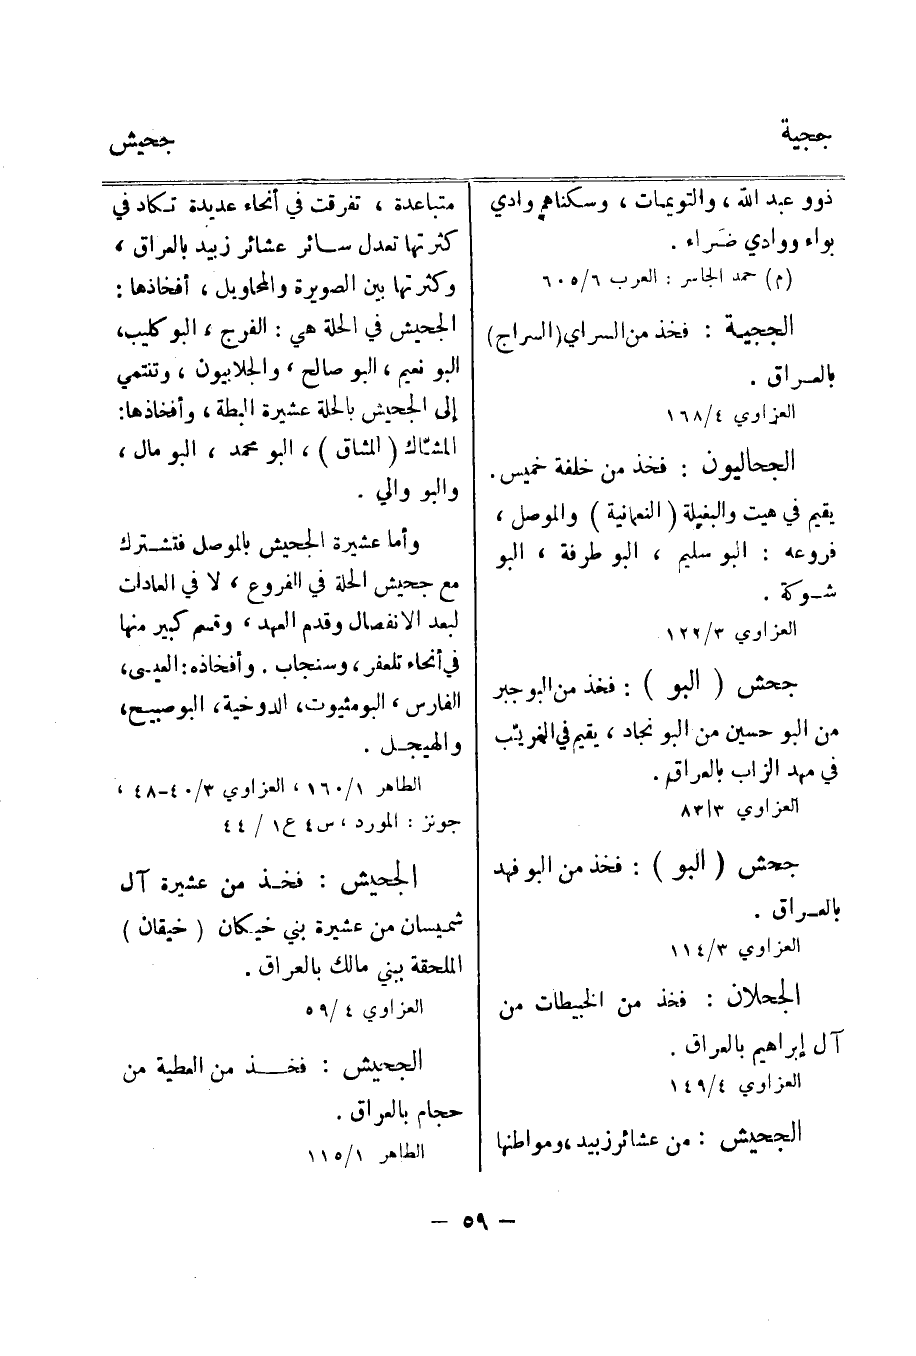 ججية
جحيش
ذوو عبد الله ، والتويمات ، وسكناهم وادي
بواء ووادي ضَراء .
(م) حمد الجاسر : العرب ٦/ ٦٠٥
الججية : فخذ من السراي (السراج)
بالعراق .
العزاوي ٤/ ١٦٨
الجحاليون : فخذ من خلفة خميس .
يقيم في هيت والبغيلة ( النعمانية ) والموصل ،
فروعه : البو سليم ، البو طرفة ، البو
شوكة .
العزاوي ٣/ ١٢٢
جحش ( البو ) : فخذ من البو جبر
من البو حسين من البو نجاد ، يقيم في الغريّب
في مهد الزاب بالعراق .
العزاوي ٣/ ٨٣
جحش ( البو ) : فخذ من البو فهد
بالعراق .
العزاوي ٣/ ١١٤
الجحلان : فخذ من الخيطات من
آل إبراهيم بالعراق .
العزاوي ٤/ ١٤٩
الجحيش : من عشائر زبيد ، ومواطنها
متباعدة ، تفرقت في أنحاء عديدة تكاد في
كثرتها تعدل سائر عشائر زبيد بالعراق ،
وكثرتها بين الصويرة والمحاويل ، أفخاذها :
الجحيش في الحلة هي : الفرج ، البو كليب ،
البو نعيم ، البو صالح ، والجلابيون ، وتنتمي
إلى الجحيش بالحلة عشيرة البطة ، وأفخاذها :
المشّاك ( المشاق ) ، البو محمد ، البو مال ،
والبو والي .
وأما عشيرة الجحيش بالموصل فتشترك
مع جحيش الحلة في الفروع ، لا في العادات
لبعد الانفصال وقدم العهد ، وقسم كبير منها
في أنحاء تلعفر ، وسنجاب . وأفخاذه : العيسى ،
الفارس ، البو مثيوت ، الدوخية ، البو صبيح ،
والهيجل .
الطاهر ١/ ١٦٠ ، العزاوي ٣/ ٤٠-٤٨ ،
جونز : المورد ، س٤ ع١ / ٤٤
الجحيش : فخذ من عشيرة آل
شميسان من عشيرة بني خيكان ( خيقان )
الملحقة ببني مالك بالعراق .
العزاوي ٤/ ٥٩
الجحيش : فخذ من العطية من
حجام بالعراق .
الطاهر ١/ ١١٥
– ٥٩ –